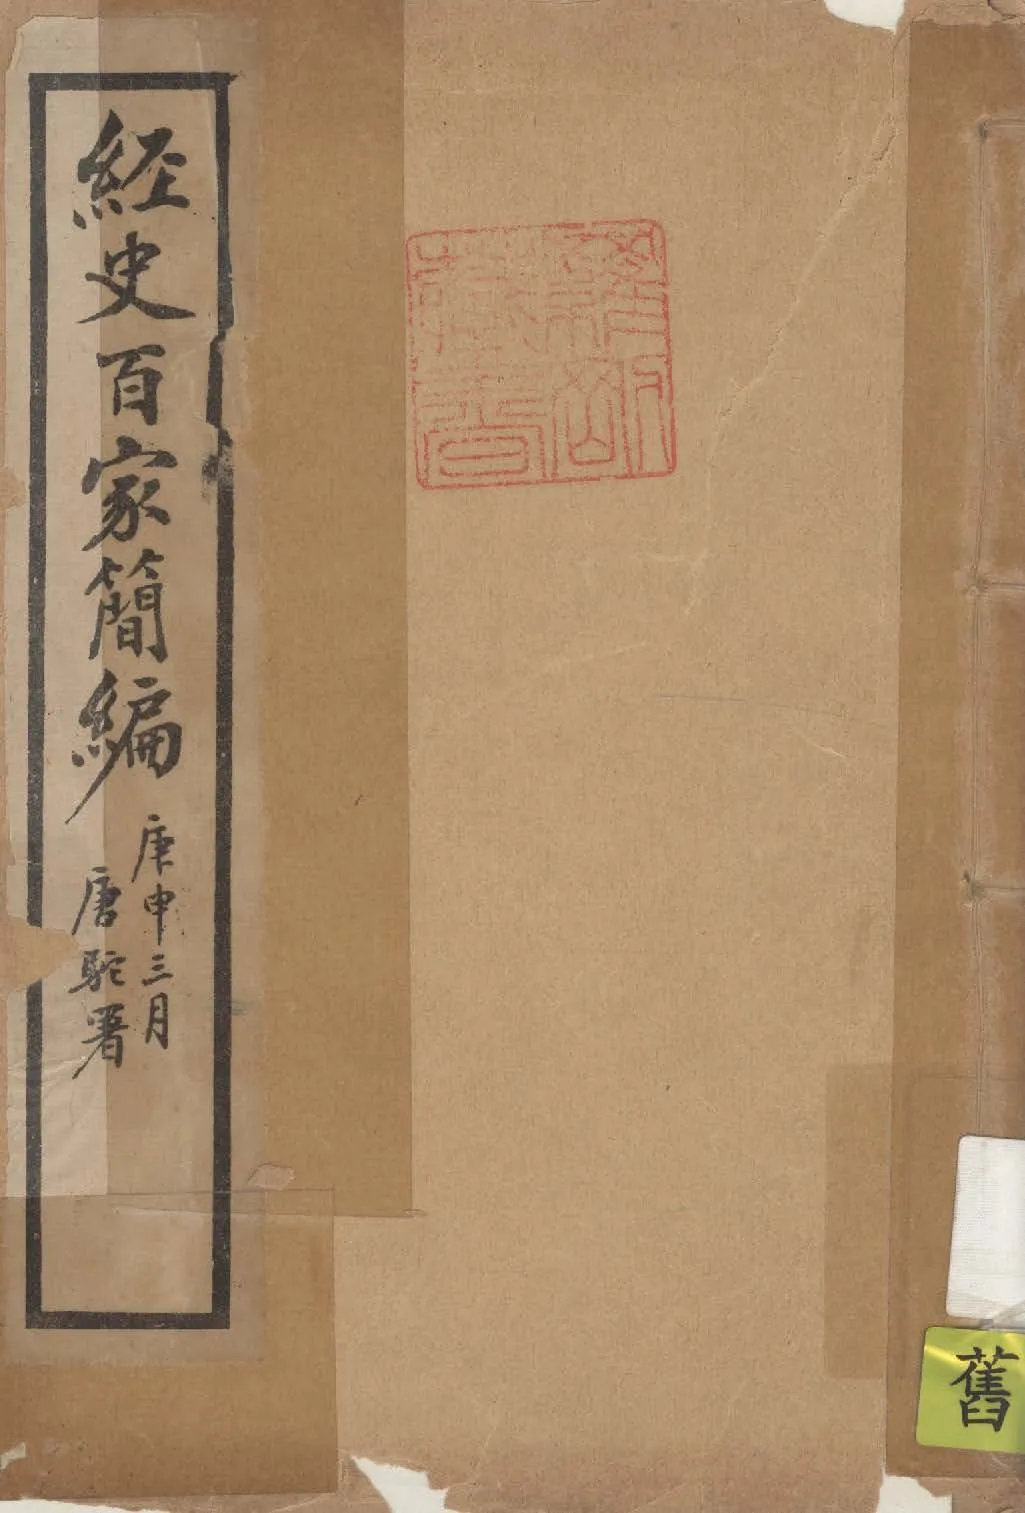 經史百家簡編
庚申三月
唐駝署
舊